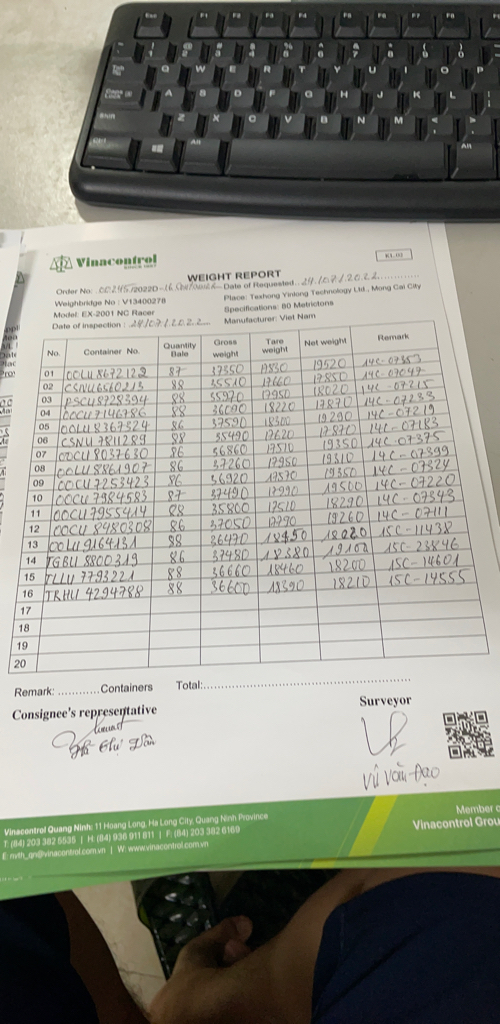 Esc F1 F2 F3 F4 F5 F6 F7 F8
Q W E R T Y U I O P
A S D F G H J K L
Shift Z X C V B N M
Ctrl Alt Alt
KL.03
Vinacontrol
SINCE 1957
WEIGHT REPORT
Order No: 00245/2022D-16 Date of Requested: 24/07/2022
Weighbridge No : V13400278 Place: Teshong Yinlong Technology Ltd., Mong Cai City
Model: EX-2001 NC Racer Specifications: 80 Metrictons
Date of inspection : 24/07/2022 Manufacturer: Viet Nam
No. Container No. Quantity Bale Gross weight Tare weight Net weight Remark
01 OOLU8672122 87 37350 17830 19520 14C-07353
02 CSNU6560213 88 35510 17660 17850 14C-07047
03 PSCU8728394 88 35970 17950 18020 14C-07215
04 OOCU7146786 88 36090 18220 17870 14C-07233
05 OOLU8367324 86 37590 18300 19290 14C-07219
06 CSNU7811289 88 35490 17620 17870 14C-07183
07 OOCU8037630 86 36860 17510 19350 14C-07375
08 OOLU8861907 86 37260 17950 19310 14C-07399
09 OOCU7253423 86 36920 17570 19350 14C-07324
10 OOCU7984583 87 37490 17990 19500 14C-07220
11 OOCU7955414 88 35800 17510 18290 14C-07343
12 OOCU8480308 86 37050 17790 19260 14C-07111
13 OOLU9164131 88 36470 18450 18020 15C-11438
14 TGBU 8800319 86 37480 18380 19100 15C-23846
15 TLLU 7793221 88 36660 18460 18200 15C-14601
16 TRHU 4294788 88 36600 18390 18210 15C-14555
17
18
19
20
Remark: ............Containers Total:
Consignee's representative Surveyor
Vũ Văn Đạo
Vinacontrol Quang Ninh: 11 Hoang Long, Ha Long City, Quang Ninh Province
T: (84) 203 382 5535 | H: (84) 936 911 811 | F: (84) 203 382 6169
E: nvth_qn@vinacontrol.com.vn | W: www.vinacontrol.com.vn
Member o
Vinacontrol Grou